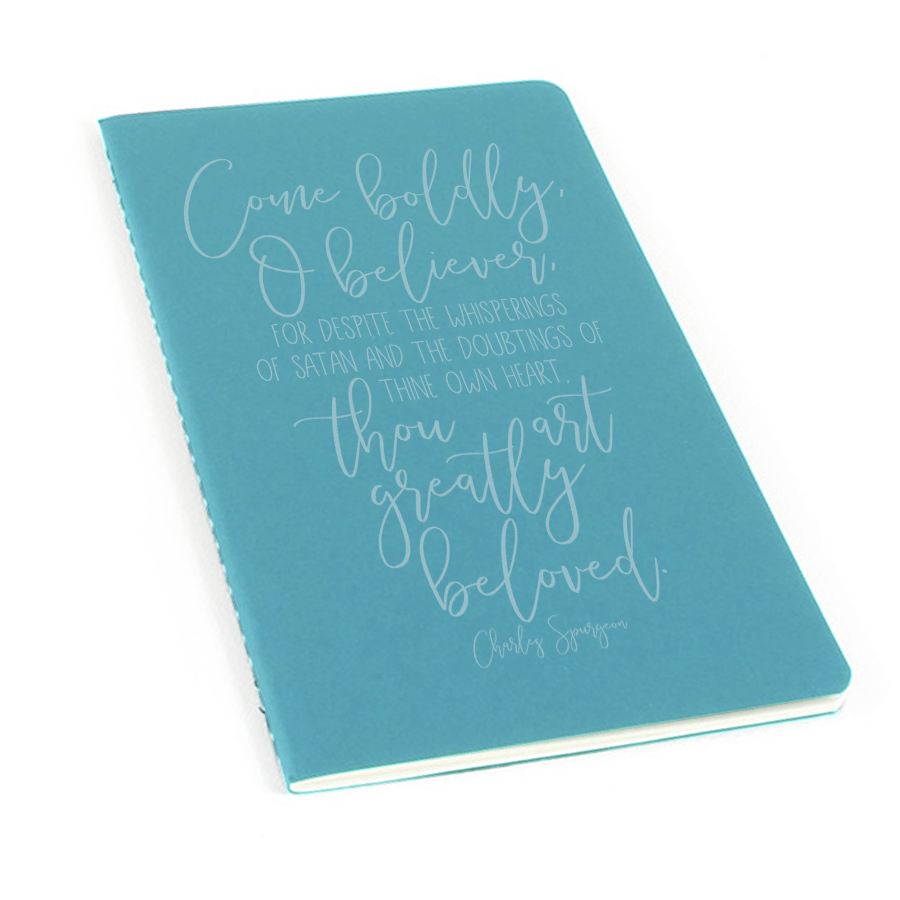 Come boldly,
O believer,
FOR DESPITE THE WHISPERINGS
OF SATAN AND THE DOUBTINGS OF
THINE OWN HEART,
thou art
greatly
beloved.
Charles Spurgeon